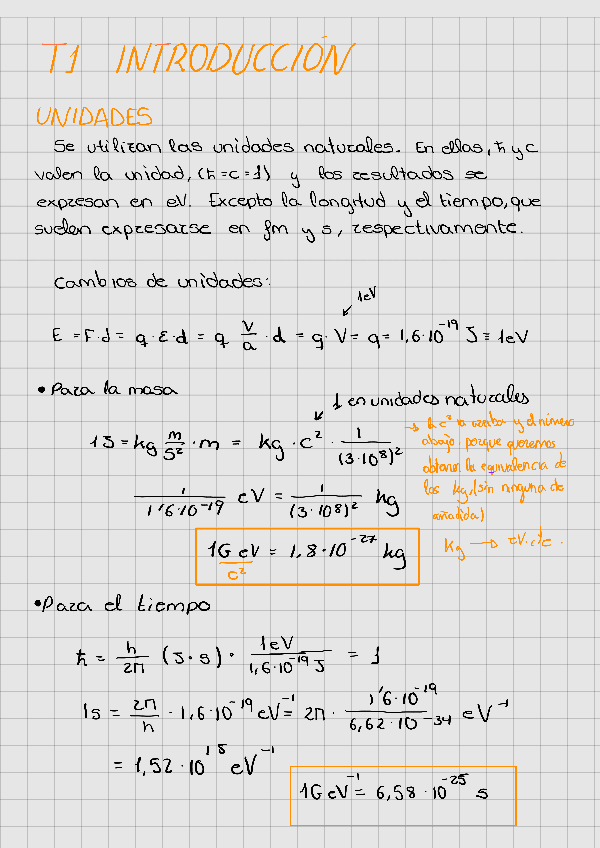 T1 INTRODUCCIÓN
UNIDADES
Se utilizan las unidades naturales. En ellas, ħ y c
valen la unidad, (ħ = c = 1) y los resultados se
expresan en eV. Excepto la longitud y el tiempo, que
suelen expresarse en fm y s, respectivamente.
Cambios de unidades:
1eV
E = F·d = q·E·d = q V/a · d = q·V = q = 1,6·10⁻¹⁹ J ≡ 1eV
• Para la masa
1 en unidades naturales
1J = kg m²/s² · m = kg · c² · 1/(3·10⁸)²
→ la c² va arriba y el número
abajo porque queremos
obtener la equivalencia de
los kg, (sin ninguna de
añadida)
1/1'6·10⁻¹⁹ eV = 1/(3·10⁸)² kg
Kg → eV,
1G eV/c² = 1,8·10⁻²⁷ kg
• Para el tiempo
ħ = h/2π (J·s) · 1eV/1,6·10⁻¹⁹ J = 1
1s = 2π/h · 1,6·10⁻¹⁹ eV⁻¹ = 2π · 1'6·10⁻¹⁹/6,62·10⁻³⁴ eV⁻¹
= 1,52·10¹⁵ eV⁻¹
1G eV⁻¹ = 6,58·10⁻²⁵ s